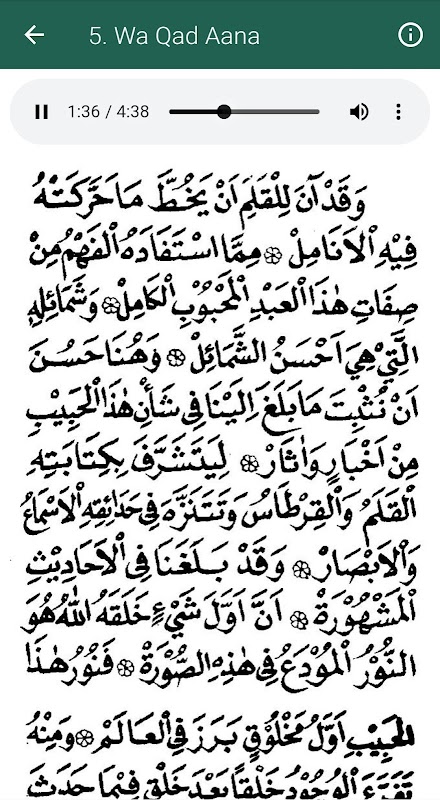 5. Wa Qad Aana
1:36 / 4:38
وَقَدْ آنَ لِلْقَلَمِ اَنْ يَخُطَّ مَا حَرَّكَتْهُ
فِيْهِ الْاَنَامِلْ ۞ مِمَّا اسْتَفَادَهُ الْفَهْمُ مِنْ
صِفَاتِ هٰذَا الْعَبْدِ الْمَحْبُوْبِ الْكَامِلْ ۞ وَشَمَائِلِهِ
الَّتِيْ هِيَ اَحْسَنُ الشَّمَائِلْ ۞ وَهُنَا حَسُنَ
اَنْ نُثْبِتَ مَا بَلَغَ اِلَيْنَا فِى شَأْنِ هٰذَا الْحَبِيْبِ
مِنْ اَخْبَارٍ وَاٰثَارْ ۞ لِيَتَشَرَّفَ بِكِتَابَتِهِ
الْقَلَمُ وَالْقِرْطَاسُ وَتَتَنَزَّهَ فِى حَدَائِقِهِ الْاَسْمَاعُ
وَالْاَبْصَارْ ۞ وَقَدْ بَلَغَنَا فِى الْاَحَادِيْثِ
الْمَشْهُوْرَةْ ۞ اَنَّ اَوَّلَ شَيْءٍ خَلَقَهُ اللهُ هُوَ
النُّوْرُ الْمُوْدَعُ فِى هٰذِهِ الصُّوْرَةْ ۞ فَنُوْرُ هٰذَا
الْحَبِيْبِ اَوَّلُ مَخْلُوْقٍ بَرَزَ فِى الْعَالَمْ ۞ وَمِنْهُ
تَفَرَّعَ الْوُجُوْدُ خَلْقًا بَعْدَ خَلْقٍ فِيْمَا حَدَثَ